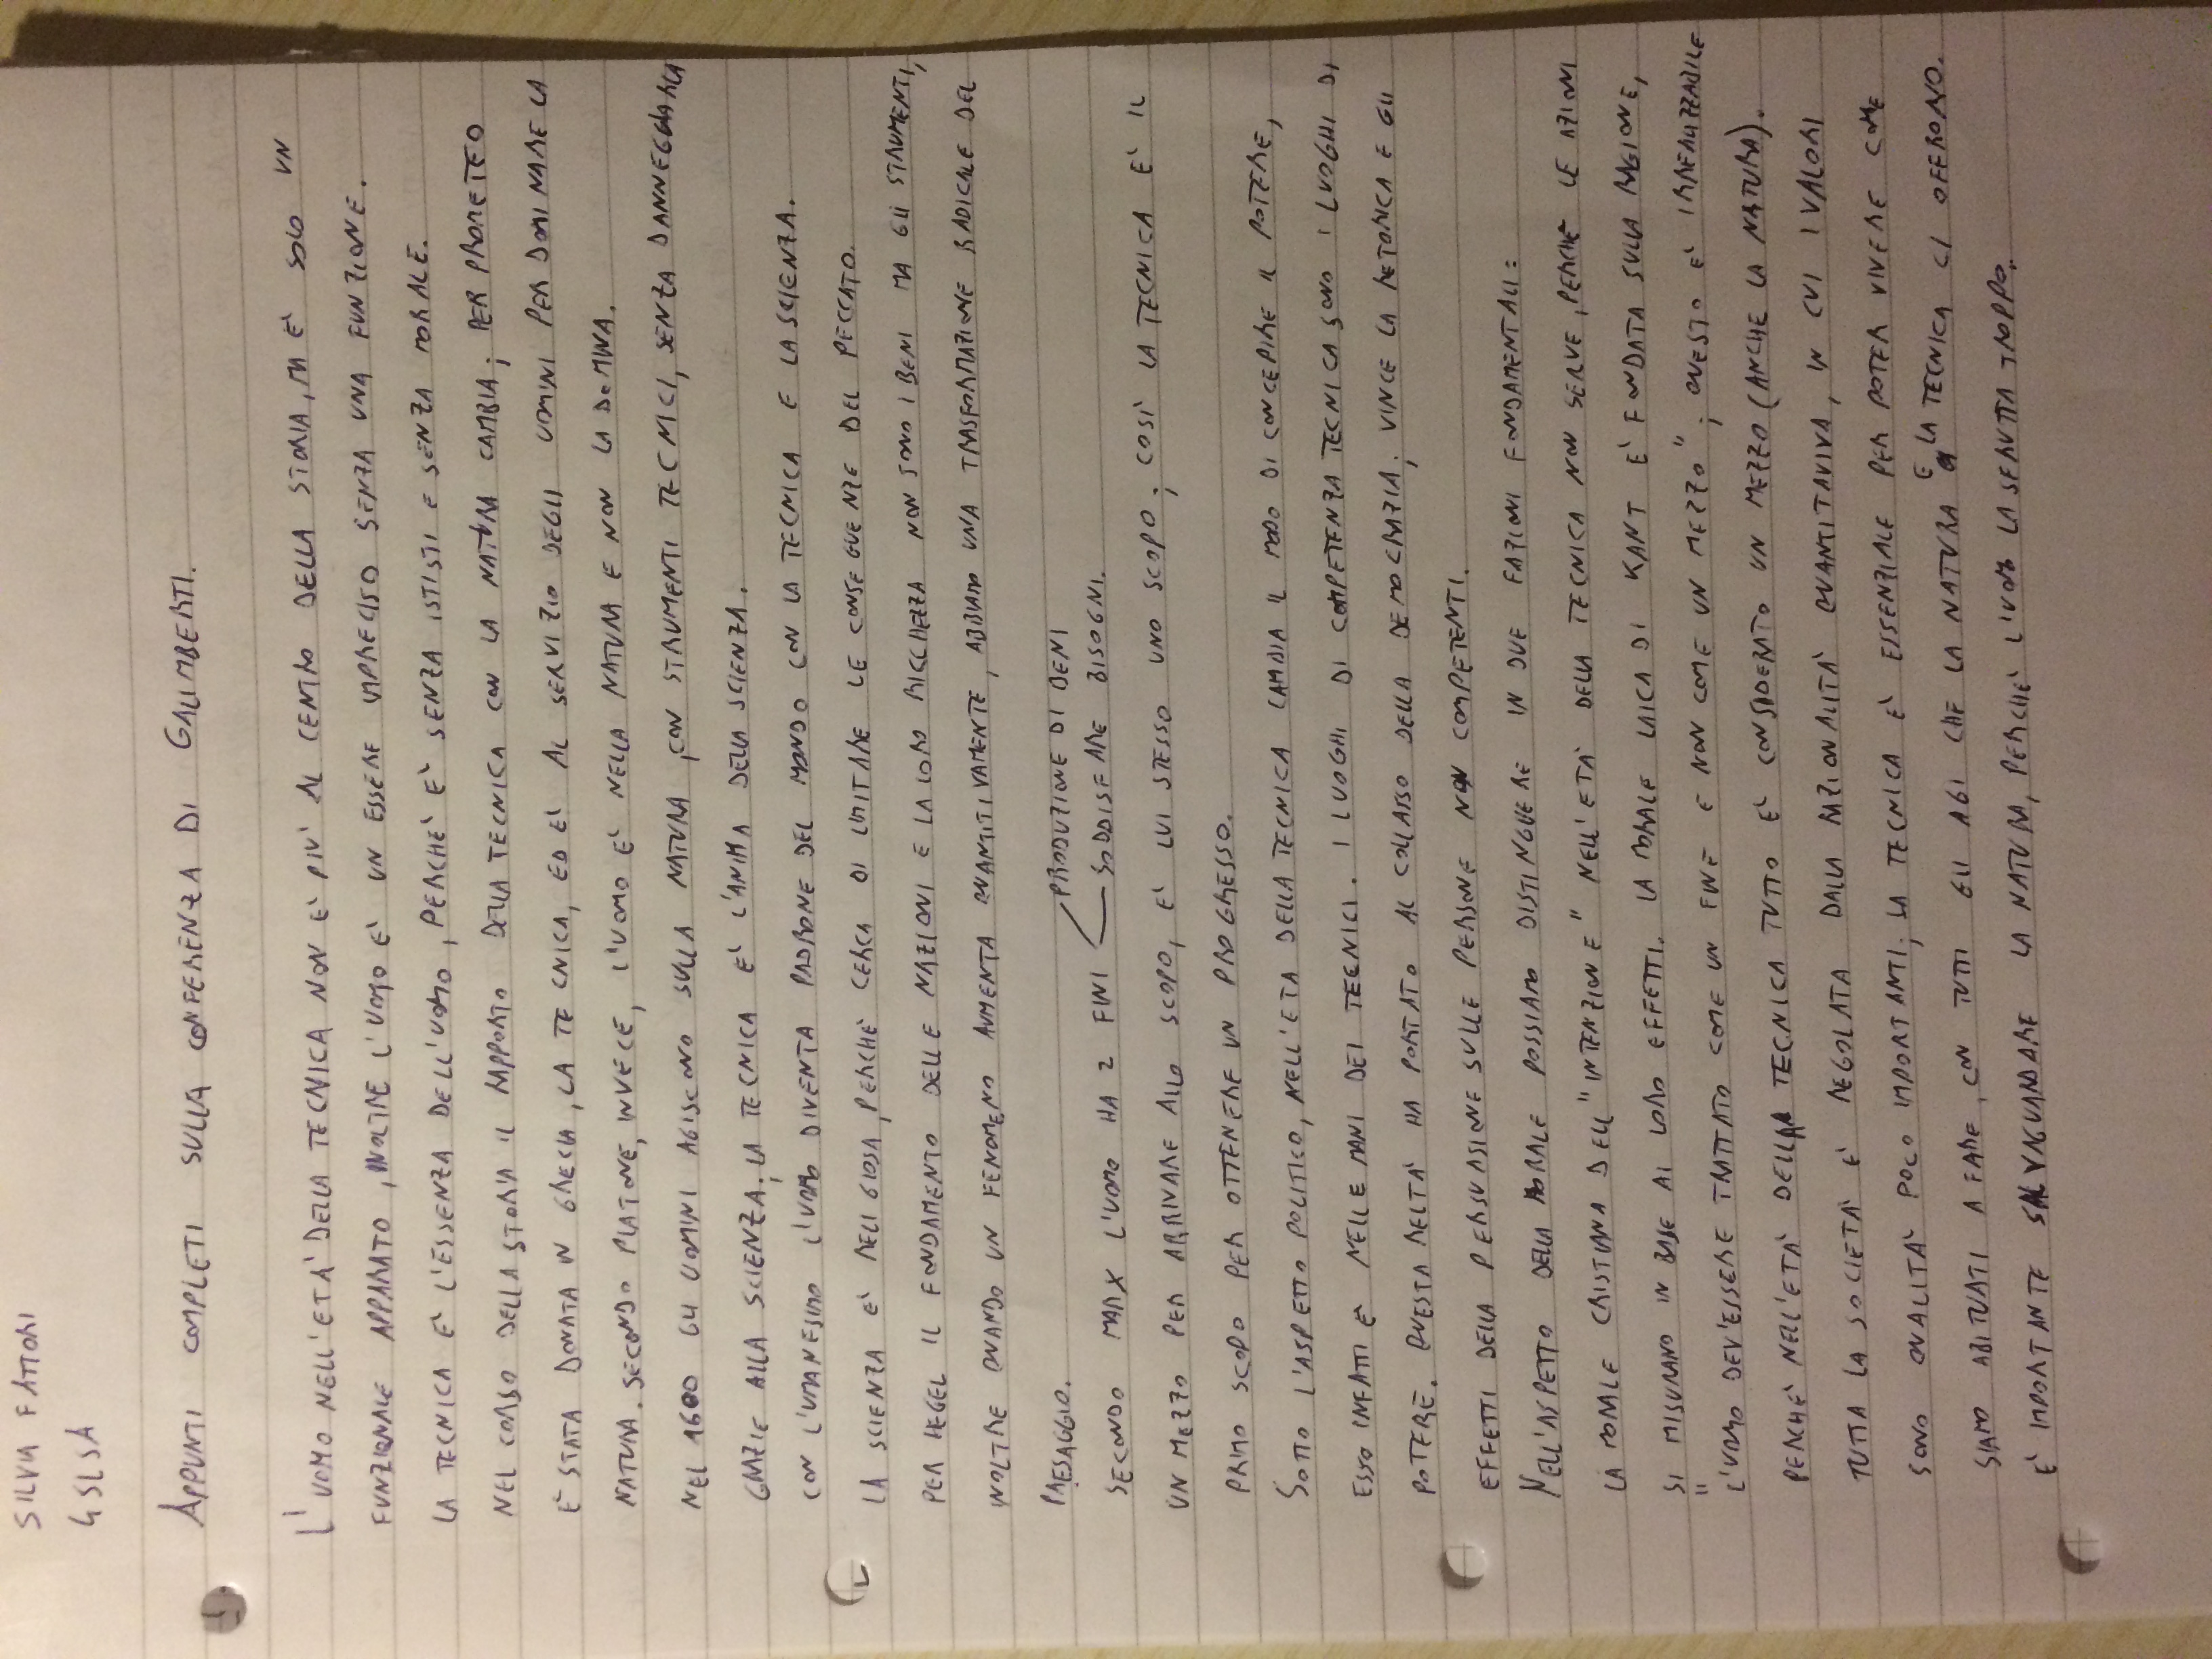 SILVIA FATTORI
4SLSA
APPUNTI COMPLETI SULLA CONFERENZA DI GALIMBERTI.
L'UOMO NELL'ETA' DELLA TECNICA NON E' PIU' AL CENTRO DELLA STORIA, MA E' SOLO UN
FUNZIONALE APPARATO, INOLTRE L'UOMO E' UN ESSERE IMPRECISO SENZA UNA FUNZIONE.
LA TECNICA E' L'ESSENZA DELL'UOMO, PERCHE' E' SENZA ISTISTI E SENZA MORALE.
NEL CORSO DELLA STORIA IL RAPPORTO DELLA TECNICA CON LA NATURA CAMBIA; PER PROMETEO
E' STATA DONATA IN GRECIA, LA TECNICA, ED E' AL SERVIZIO DEGLI UOMINI PER DOMINARE LA
NATURA. SECONDO PLATONE, INVECE, L'UOMO E' NELLA NATURA E NON LA DOMINA.
NEL 1600 GLI UOMINI AGISCONO SULLA NATURA, CON STRUMENTI TECNICI, SENZA DANNEGGIARLA
GRAZIE ALLA SCIENZA; LA TECNICA E' L'ANIMA DELLA SCIENZA.
CON L'UMANESIMO L'UOMO DIVENTA PADRONE DEL MONDO CON LA TECNICA E LA SCIENZA.
LA SCIENZA E' RELIGIOSA, PERCHE' CERCA DI LIMITARE LE CONSEGUENZE DEL PECCATO.
PER HEGEL IL FONDAMENTO DELLE NAZIONI E LA LORO RICCHEZZA NON SONO I BENI MA GLI STRUMENTI,
INOLTRE QUANDO UN FENOMENO AUMENTA QUANTITIVAMENTE, ABBIAMO UNA TRASFORMAZIONE RADICALE DEL
PAESAGGIO.
PRODUZIONE DI BENI
SECONDO MARX L'UOMO HA 2 FINI SODDISFARE BISOGNI.
UN MEZZO PER ARRIVARE ALLO SCOPO, E' LUI STESSO UNO SCOPO; COSI' LA TECNICA E' IL
PRIMO SCOPO PER OTTENERE UN PROGRESSO.
SOTTO L'ASPETTO POLITICO, NELL'ETA DELLA TECNICA CAMBIA IL MODO DI CONCEPIRE IL POTERE,
ESSO INFATTI E' NELLE MANI DEI TECNICI. I LUOGHI DI COMPETENZA TECNICA SONO I LUOGHI DI
POTERE. QUESTA REALTA' HA PORTATO AL COLLASSO DELLA DEMOCRAZIA; VINCE LA RETORICA E GLI
EFFETTI DELLA PERSUASIONE SULLE PERSONE NON COMPETENTI.
NELL'ASPETTO DELLA MORALE POSSIAMO DISTINGUERE IN DUE FAZIONI FONDAMENTALI:
LA MORALE CRISTIANA DELL'"INTENZIONE" NELL'ETA' DELLA TECNICA NON SERVE, PERCHE' LE AZIONI
SI MISURANO IN BASE AI LORO EFFETTI. LA MORALE LAICA DI KANT E' FONDATA SULLA RAGIONE,
"L'UOMO DEV'ESSERE TRATTATO COME UN FINE E NON COME UN MEZZO"; QUESTO E' IRREALIZZABILE
PERCHE' NELL'ETA' DELLA TECNICA TUTTO E' CONSIDERATO UN MEZZO (ANCHE LA NATURA).
TUTTA LA SOCIETA' E' REGOLATA DALLA RAZIONALITA' QUANTITAVIVA, IN CUI I VALORI
SONO QUALITA' POCO IMPORTANTI; LA TECNICA E' ESSENZIALE PER POTER VIVERE COME
SIAMO ABITUATI A FARE, CON TUTTI GLI AGI CHE LA NATURA E LA TECNICA CI OFFRONO.
E' IMPORTANTE SALVAGUARDARE LA NATURA, PERCHE' L'UOMO LA SFRUTTA TROPPO.